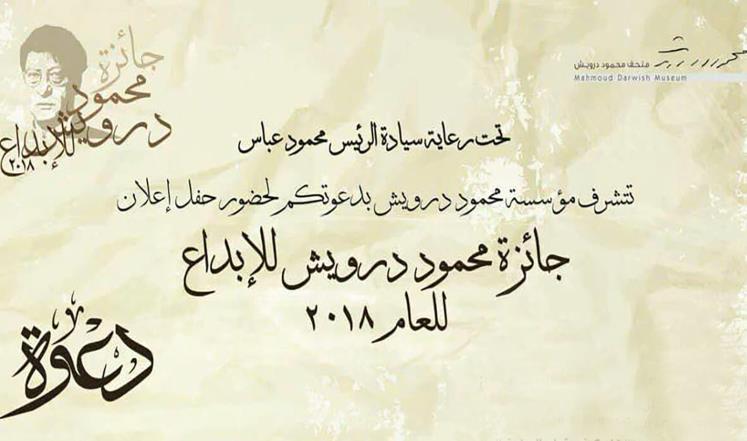 جائزة
محمود
درويش
للإبداع
٢٠١٨
متحف محمود درويش
Mahmoud Darwish Museum
تحت رعاية سيادة الرئيس محمود عباس
تتشرف مؤسسة محمود درويش بدعوتكم لحضور حفل إعلان
جائزة محمود درويش للإبداع
للعام ٢٠١٨
دعوة